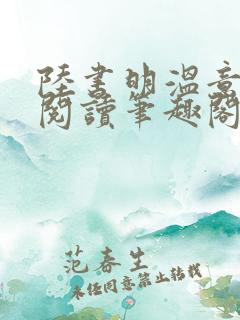 陸書明溫意
閱讀筆趣閣
范春生
未经同意禁止转载